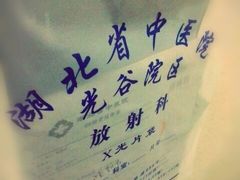 湖北省中医院
光谷院区
放射科
X光片袋